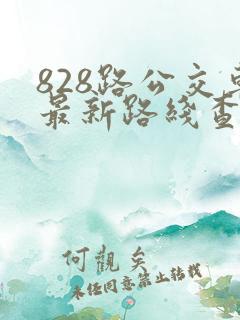 828路公交车
最新路线查
何觀矣
未经同意禁止转载